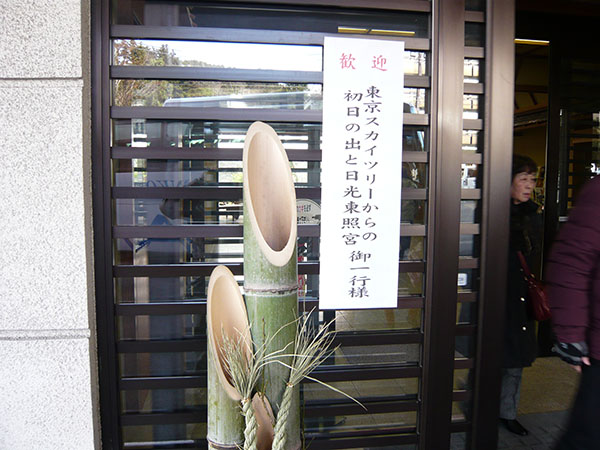 歓迎
東京スカイツリーからの
初日の出と日光東照宮 御一行様